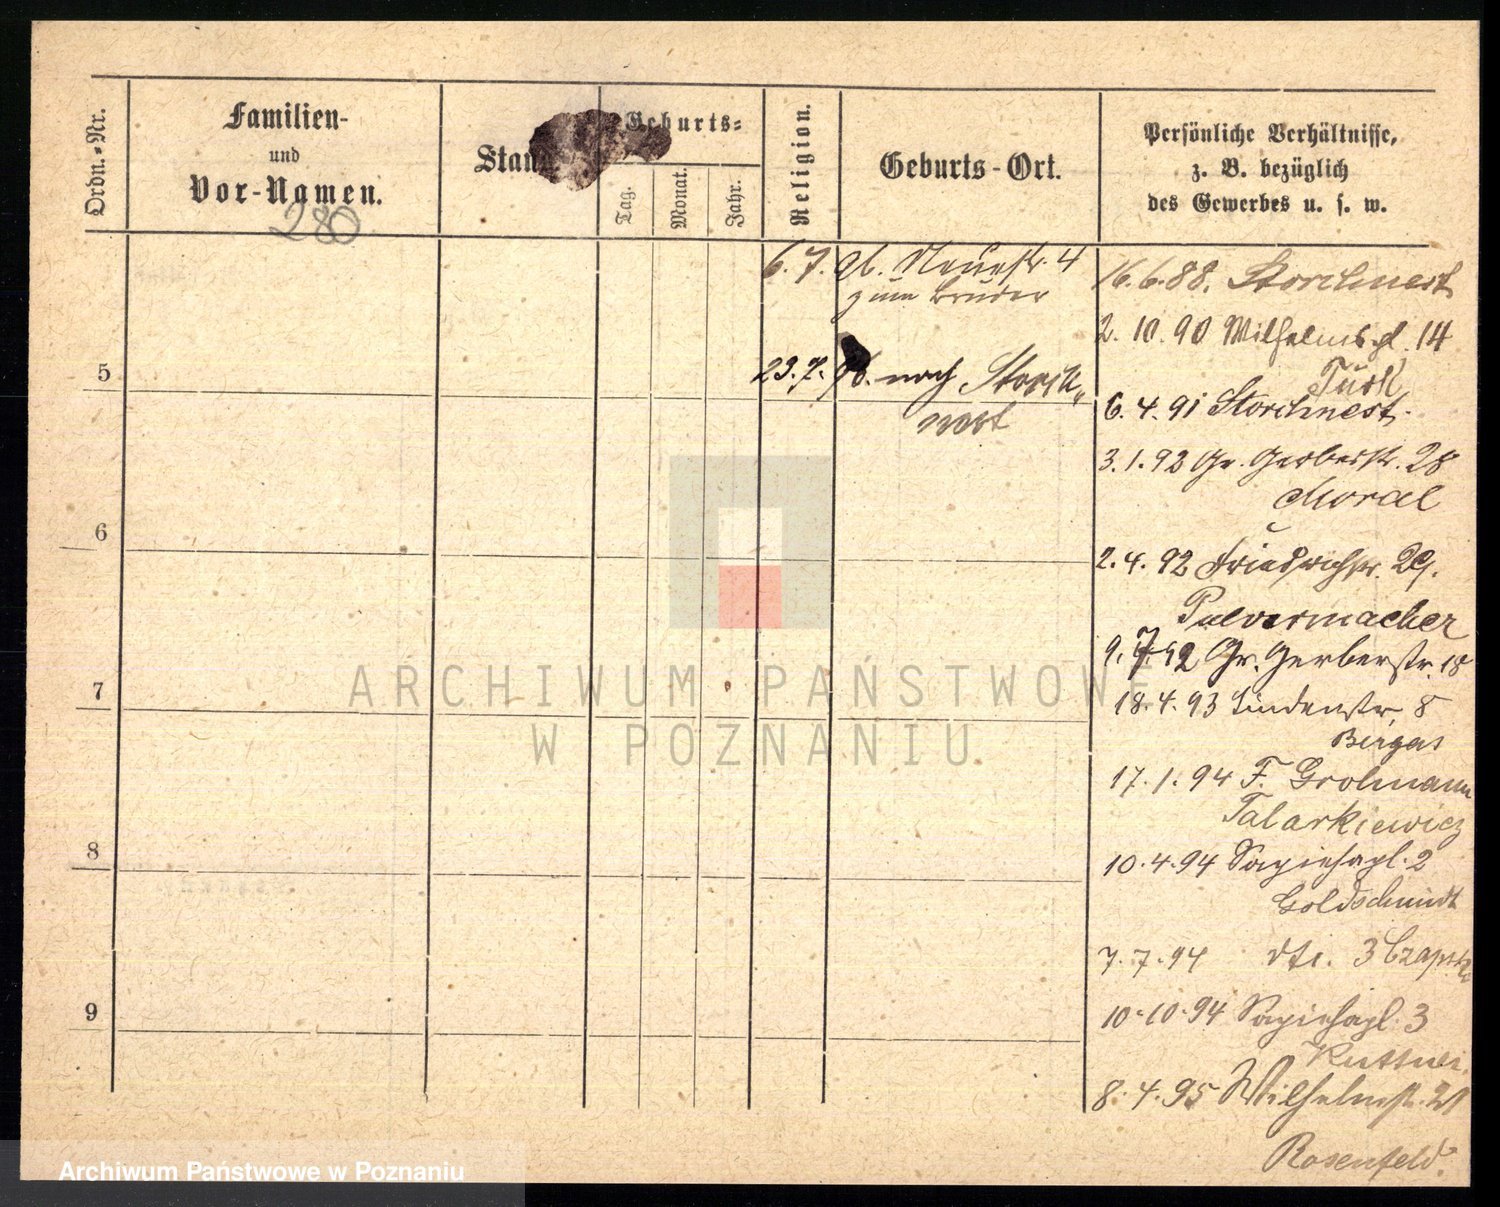 Ordn.-Nr.
Familien-
und
Vor-Namen.
280
Stand
Geburts-
Tag.
Monat.
Jahr.
Religion.
Geburts-Ort.
Persönliche Verhältnisse,
z. B. bezüglich
des Gewerbes u. s. w.
6. 7. 96. Neuestr. 4
zum Bruder
23. 7. 96. nach Storch,,
nest
5
6
7
8
9
16.6.88. Storchnest
2. 10. 90 Wilhelmspl. 14
Türk
6. 4. 91 Storchnest.
3. 1. 92 Gr. Gerberstr. 28
Moral
2. 4. 92 Friedrichstr. 29.
Pulvermacher
9. 7. 92 Gr. Gerberstr. 18
18. 4. 93 Lindenstr. 8
Bergas
17. 1. 94 F. Grolmann
Talarkiewicz
10. 4. 94 Sapiehapl. 2
Goldschmidt
7. 7. 94 dto. 3 Czapski
10. 10. 94 Sapiehapl. 3
Kuttner.
8. 4. 95 Wilhelmstr. 21
Rosenfeld.
ARCHIWUM PAŃSTWOWE
W POZNANIU
Archiwum Państwowe w Poznaniu